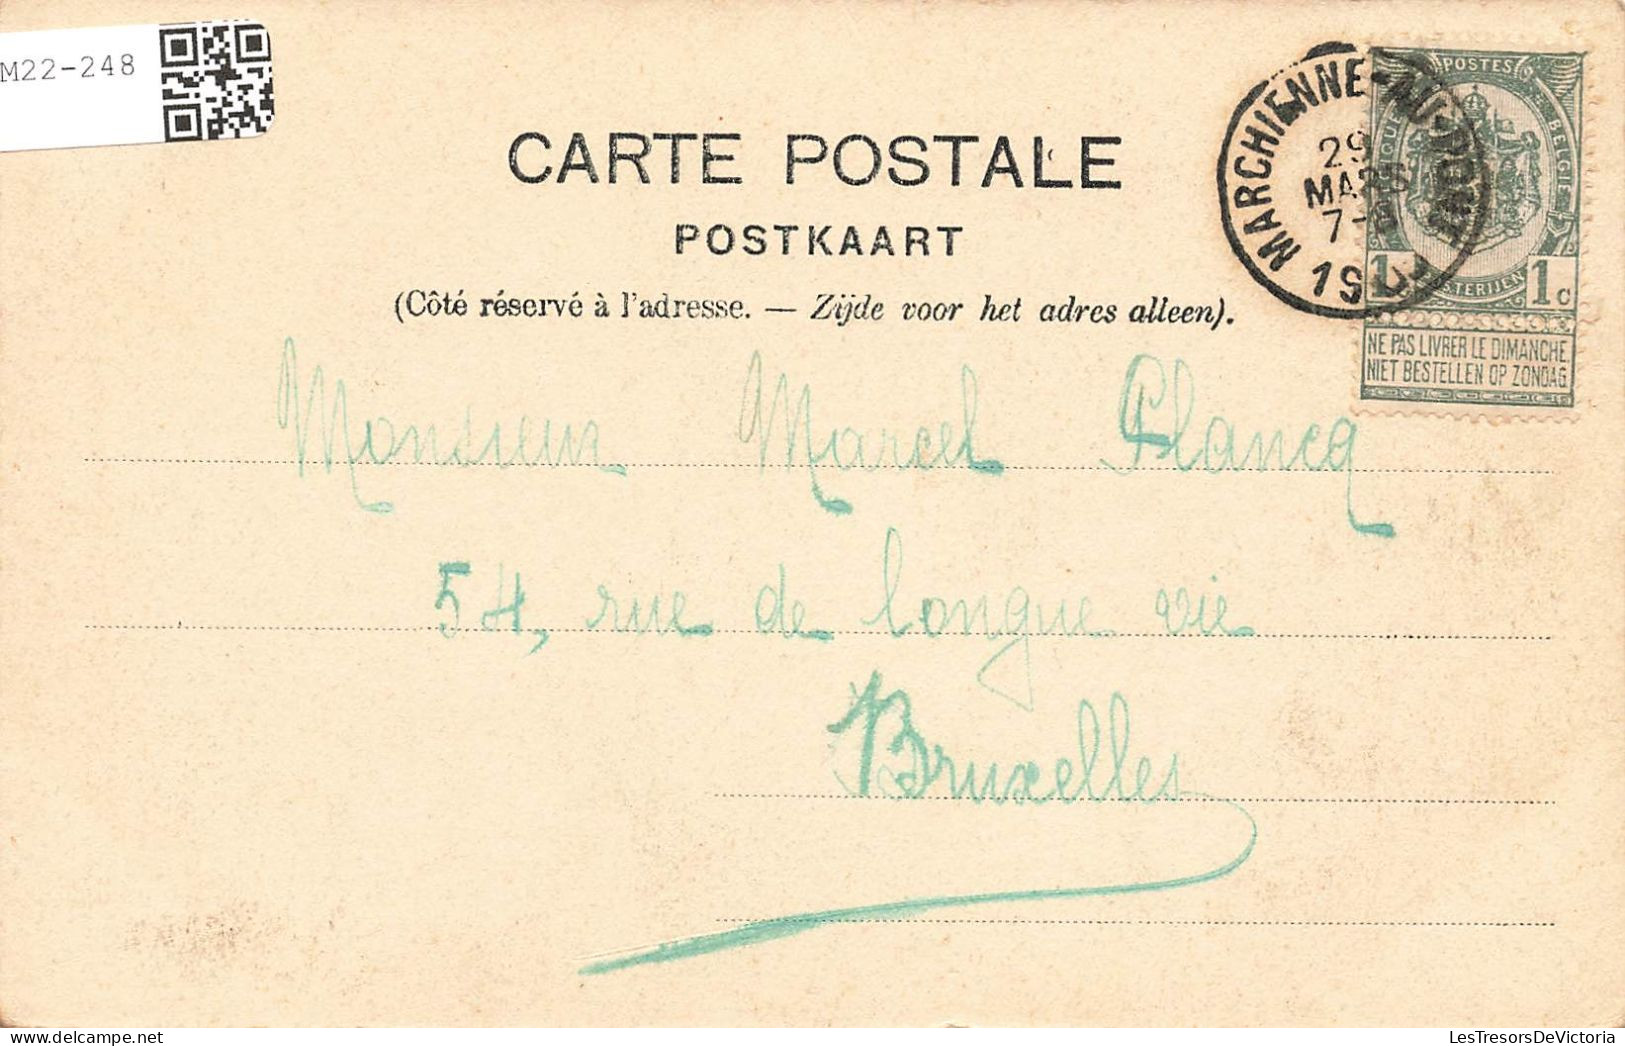 M22-248
CARTE POSTALE
POSTKAART
(Côté réservé à l'adresse. — Zijde voor het adres alleen).
MARCHIENNE-AU-PONT
29
MARS
7-
19
POSTES
BELGIQUE BELGIË
POSTERIJEN
1 1c
NE PAS LIVRER LE DIMANCHE
NIET BESTELLEN OP ZONDAG
Monsieur Marcel Plancq
54, rue de longue vie
Bruxelles
LesTresorsDeVictoria